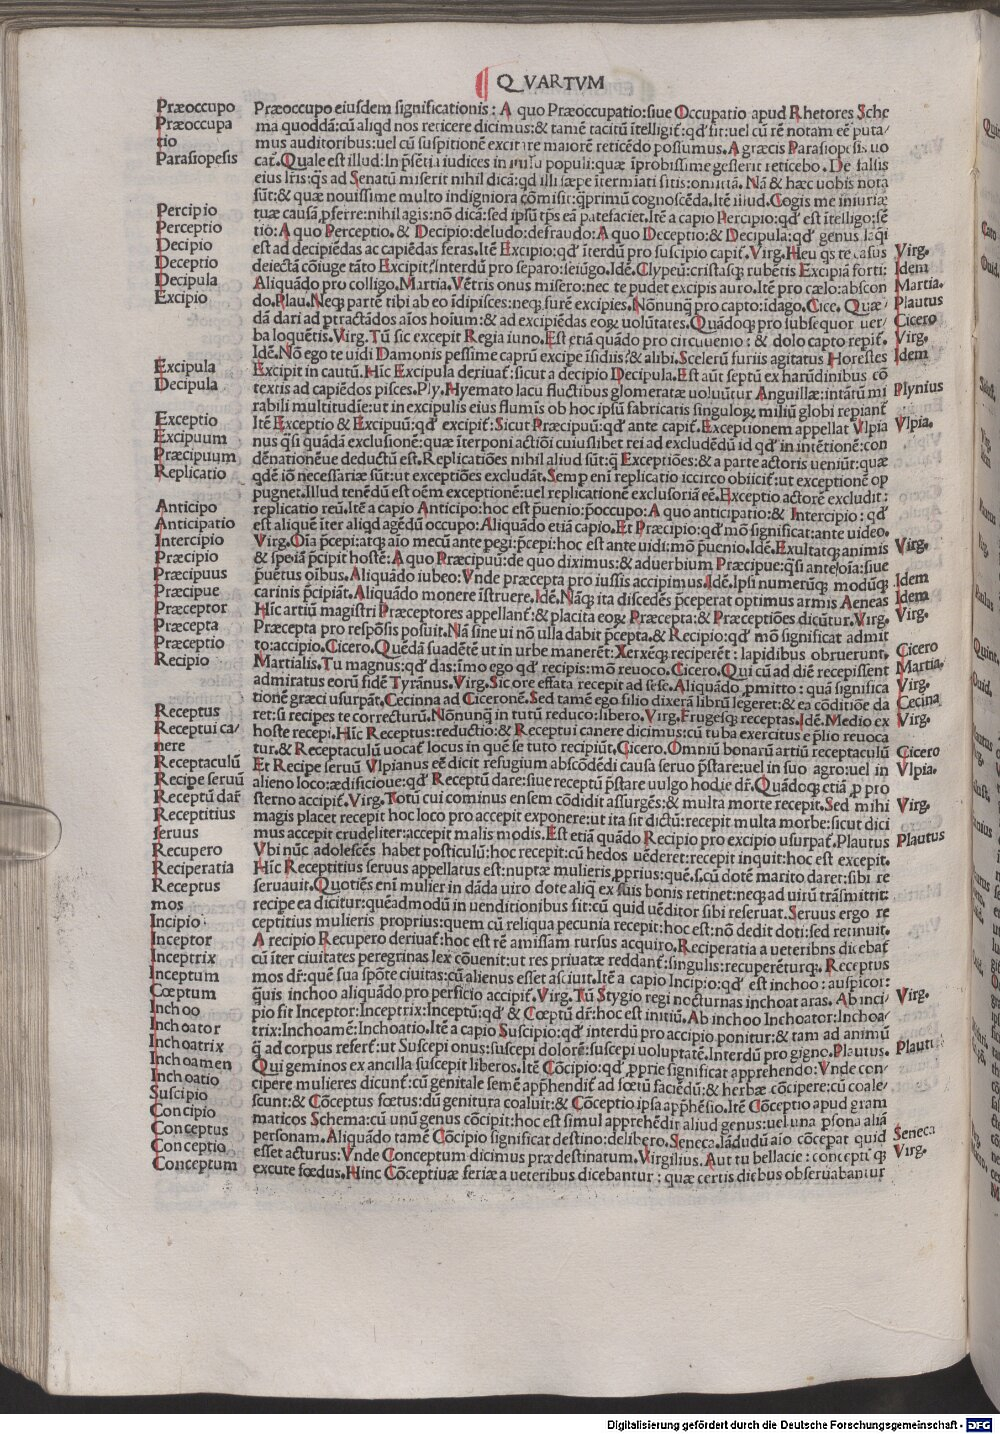 QVARTVM
Præoccupo
Præoccupa
tio
Parasiopesis
Percipio
Perceptio
Decipio
Deceptio
Decipula
Excipio
Excipula
Decipula
Exceptio
Excipuum
Præcipuum
Replicatio
Anticipo
Anticipatio
Intercipio
Præcipio
Præcipuus
Præcipue
Præceptor
Præcepta
Præceptio
Recipio
Receptus
Receptui ca/
nere
Receptaculū
Recipe seruū
Receptū dar̄
Receptitius
seruus
Recupero
Reciperatia
Receptus
mos
Incipio
Inceptor
Inceptrix
Inceptum
Cœptum
Inchoo
Inchoator
Inchoatrix
Inchoamen
Inchoatio
Suscipio
Concipio
Conceptus
Conceptio
Conceptum
Præoccupo eiusdem significationis: A quo Præoccupatio: siue Occupatio apud Rhetores Sche
ma quoddā: cū aliqd nos reticere dicimus: & tamē tacitū ītelligit̄: qd' fit: uel cū rē notam eē puta/
mus auditoribus: uel cū suspitionē excitare maiorē reticēdo possumus. A græcis Parasiopesis uo
cat̄. Quale est illud: In p̄sētia iudices in populi: quæ īprobissime gesserit reticebo. De falsis
eius lr̄is: q̄s ad Senatū miserit nihil dicā: qd illi sæpe ītermiati sitis: omittā. Nā & hæc uobis nota
sūt: & quæ nouissime multo indigniora cōmisit: q̄primū cognoscēda. Itē illud. Cogis me iniuriæ
tuæ causā ꝓferre: nihil agis: nō dicā: sed ipsū tp̄s eā patefaciet. Itē a capio Percipio: qd' est ītelligo: sē
tio: A quo Perceptio. & Decipio: deludo: defraudo: A quo Deceptio: & Decipula: qd' genus laq̄i
est ad decipiēdas ac capiēdas feras. Itē Excipio: qd' īterdū pro suscipio capit̄. Virg. Heu q̄s te casus
deiectā cōiuge tāto Excipit? Interdū pro separo: seiūgo. Idē. Clypeū: cristasq; rubētis Excipiā sorti:
Aliquādo pro colligo. Martia. Vētris onus misero: nec te pudet excipis auro. Itē pro cælo: abscon
do. Plau. Neq; partē tibi ab eo īdipisces: neq; furē excipies. Nōnunq̄ pro capto: idago. Cice. Quæ/
dā dari ad ꝑtractādos aīos hoīum: & ad excipiēdas eoꝝ uolūtates. Quādoq; pro subsequor uer/
ba loquētis. Virg. Tū sic excepit Regia iuno. Est etiā quādo pro circuuenio: & dolo capto repit̄.
Idē. Nō ego te uidi Damonis pessime caprū excipe īsidiis? & alibi. Scelerū furiis agitatus Horestes
Excipit in cautū. Hīc Excipula deriuat̄: sicut a decipio Decipula. Est aūt septū ex harūdinibus cō
textis ad capiēdos pisces. Ply. Hyemato lacu fluctibus glomeratæ uoluūtur Anguillæ: intātū mi
rabili multitudīe: ut in excipulis eius flumīs ob hoc ipsū fabricatis singuloꝝ miliū globi repiant̄
Itē Exceptio & Excipuū: qd' excipit̄: Sicut Præcipuū: qd' ante capit̄. Exceptionem appellat Vlpia
nus q̄si quādā exclusionē: quæ īterponi actiōi cuiuslibet rei ad excludēdū id qd' in intētionē: con
dēnationēue deductū est. Replicatiōes nihil aliud sūt: q̄ Exceptiōes: & a parte actoris ueniūt: quæ
qdē iō necessariæ sūt: ut exceptiōes excludāt. Semꝑ enī replicatio iccirco obiicit̄: ut exceptionē op
pugnet. Illud tenēdū est oēm exceptionē: uel replicationē exclusoriā eē. Exceptio actorē excludit:
replicatio reū. Itē a capio Anticipo: hoc est p̄uenio: p̄occupo: A quo anticipatio: & Intercipio: qd'
est aliquē īter aliqd agēdū occupo: Aliquādo etiā capio. Et Præcipio: qd' mō significat: ante uideo.
Virg. Oīa p̄cepi: atq; aīo mecū ante ꝑegi: p̄cepi: hoc est ante uidi: mō p̄uenio. Idē. Exultatq; animis
& spoīā p̄cipit hostē: A quo Præcipuū: de quo diximus: & aduerbium Præcipue: q̄si ante oīa: siue
p̄uētus oībus. Aliquādo iubeo: Vnde præcepta pro iussis accipimus. Idē. Ipsi numerūq; modūq;
carinis p̄cipiāt. Aliquādo monere īstruere. Idē. Nāq; ita discedēs p̄ceperat optimus armis Aeneas
Hīc artiū magistri Præceptores appellant̄: & placita eoꝝ Præcepta: & Præceptiōes dicūtur. Virg.
Præcepta pro respōsis posuit. Nā sine ui nō ulla dabit p̄cepta. & Recipio: qd' mō significat admit
to: accipio. Cicero. Quēdā suadētē ut in urbe manerēt: Xerxēq; reciperēt: lapidibus obruerunt.
Martialis. Tu magnus: qd' das: īmo ego qd' recipis: mō reuoco. Cicero. Qui cū ad diē recepissent
admiratus eorū fidē Tyrānus. Virg. Sic ore effata recepit ad sese. Aliquādo ꝓmitto: quā significa
tionē græci usurpāt. Cecinna ad Ciceronē. Sed tamē ego filio dixerā librū legeret: & ea cōditiōe da
ret: si recipes te correcturū. Nōnunq̄ in tutū reduco: libero. Virg. Frugesq; receptas. Idē. Medio ex
hoste recepi. Hīc Receptus: reductio: & Receptui canere dicimus: cū tuba exercitus e p̄lio reuoca
tur. & Receptaculū uocat̄ locus in quē se tuto recipiūt. Cicero. Omniū bonarū artiū receptaculū
Et Recipe seruū Vlpianus eē dicit refugium abscōdēdi causa seruo p̄stare: uel in suo agro: uel in
alieno loco: ædificioue: qd' Receptū dare: siue receptū p̄stare uulgo hodie dr̄. Quādoq; etiā ꝓ pro
sterno accipit̄. Virg. Totū cui cominus ensem cōdidit assurgēs: & multa morte recepit. Sed mihi
magis placet recepit hoc loco pro accepit exponere: ut ita sit dictū: recepit multa morbe: sicut dici
mus accepit crudeliter: accepit malis modis. Est etiā quādo Recipio pro excipio usurpat̄. Plautus
Vbi nūc adolescēs habet posticulū: hoc recepit: cū hedos uēderet: recepit inquit: hoc est excepit.
Hīc Receptitius seruus appellatus est: nuptæ mulieris ꝓprius: quē. s. cū dotē marito daret: sibi re
seruauit. Quotiēs enī mulier in dāda uiro dote aliq̄ ex suis bonis retinet: neq; ad uirū trāsmittit:
recipe ea dicitur: quēadmodū in uenditionibus fit: cū quid uēditor sibi reseruat. Seruus ergo re
ceptitius mulieris proprius: quem cū reliqua pecunia recepit: hoc est: nō dedit doti: sed retinuit.
A recipio Recupero deriuat̄: hoc est rē amissam rursus acquiro. Reciperatia a ueteribns dicebat̄
cū īter ciuitates peregrinas lex cōuenit: ut res priuatæ reddant̄: singulis: recuperēturq;. Receptus
mos dr̄: quē sua spōte ciuitas: cū alienus esset asciuit. Itē a capio Incipio: qd' est inchoo: auspicor:
q̄uis inchoo aliquādo pro perficio accipit̄. Virg. Tū Stygio regi nocturnas inchoat aras. Ab inci/
pio fit Inceptor: Inceptrix: Inceptū: qd' & Cœptū dr̄: hoc est initiū. Ab inchoo Inchoator: Inchoa/
trix: Inchoamē: Inchoatio. Itē a capio Suscipio: qd' interdū pro accipio ponitur: & tam ad animū
q̄ ad corpus refert̄: ut Suscepi onus: suscepi dolorē: suscepi uoluptatē. Interdū pro gigno. Plautus.
Qui geminos ex ancilla suscepit liberos. Itē Cōcipio: qd' ꝓprie significat apprehendo: Vnde con/
cipere mulieres dicunt̄: cū genitale semē app̄hendit̄ ad fœtū faciēdū: & herbæ cōcipere: cū coale/
scunt: & Cōceptus fœtus: dū genitura coaluit: & Cōceptio ipsa app̄hēsio. Itē Cōceptio apud gram
maticos Schema: cū unū genus cōcipit: hoc est simul apprehēdit aliud genus: uel una ꝑsona aliā
personam. Aliquādo tamē Cōcipio significat destino: delibero. Seneca. Iādudū aio cōcepat quid
esset acturus: Vnde Conceptum dicimus præ destinatum. Virgilius. Aut tu bellacie: conceptūq;
excute fœdus. Hinc Cōceptiuæ feriæ a ueteribus dicebantur: quæ certis diebus obseruabantur
Virg.
Idem
Martia.
Plautus
Cicero
Virg.
Idem
Plynius
Vlpia.
Virg.
Idem
Idem
Virg.
Cicero
Martia.
Virg.
Cecina
Virg.
Cicero
Vlpia.
Virg.
Plautus
Virg.
Plautus
Seneca
Virg.
Digitalisierung gefördert durch die Deutsche Forschungsgemeinschaft - DFG